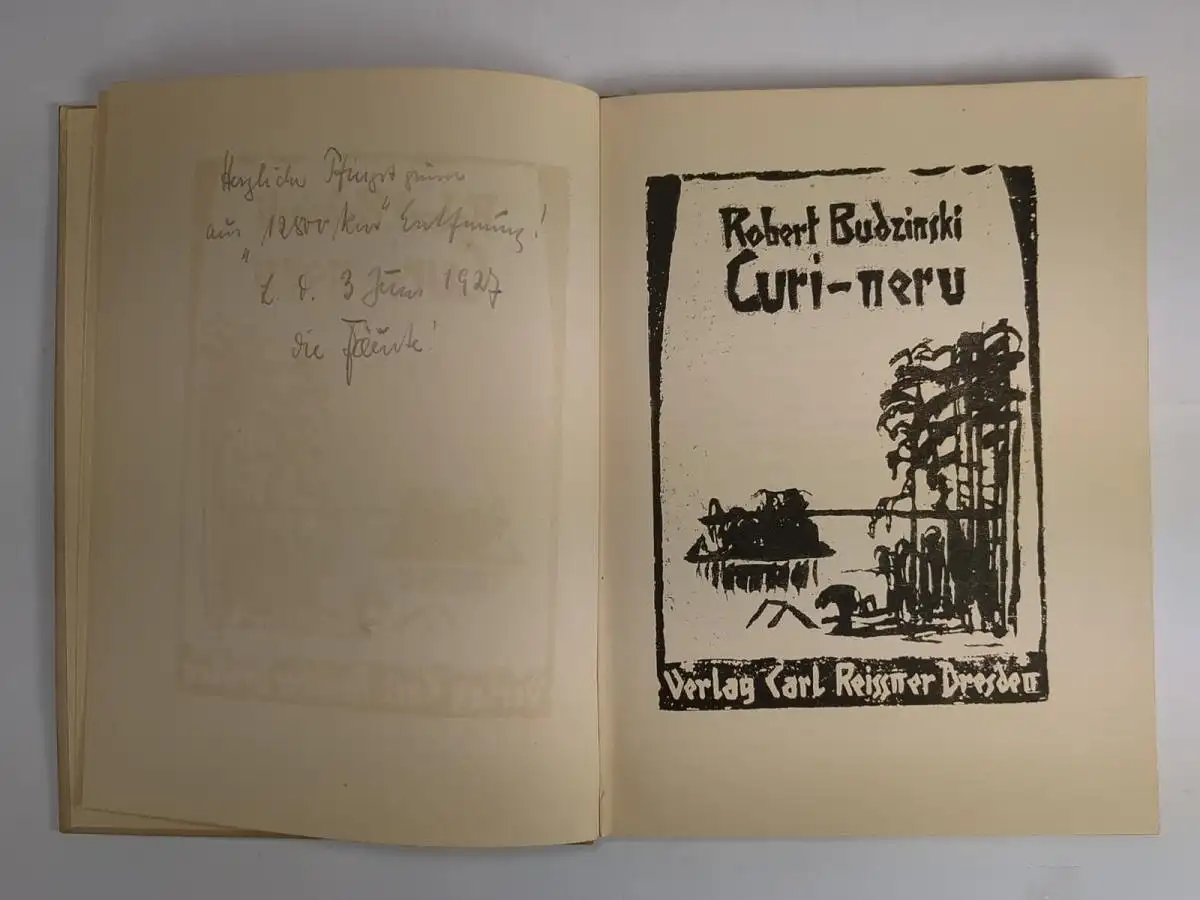 Herzliche Pfingstgrüsse
aus "12800 km" Entfernung!
L. d. 3 Juni 1927
die
Robert Budzinski
Curi-neru
Verlag Carl Reissner Dresden